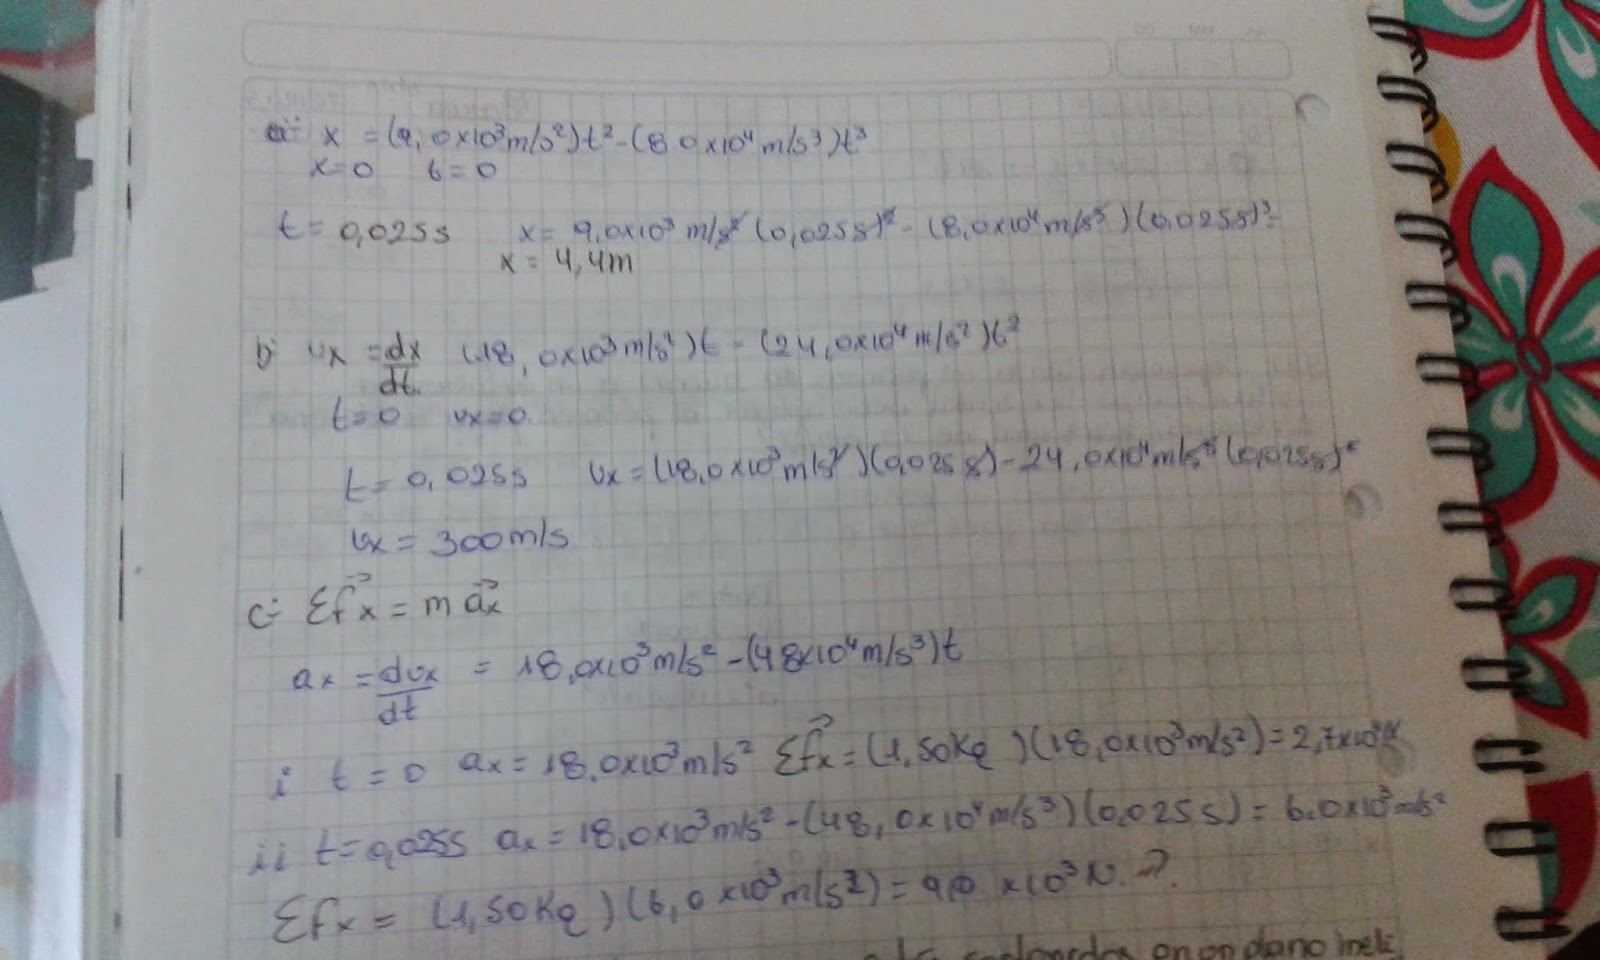 a:- x = (9,0x10³m/s²)t² - (8 0x10⁴m/s³)t³
x=0 t=0
t= 0,025s x= 9,0x10³ m/s² (0,025s)² - (8,0x10⁴m/s³)(0,025s)³=
x = 4,4m
b- vx = dx/dt (18,0x10³m/s²)t - (24,0x10⁴m/s²)t²
t=0 vx=0
t= 0,025s vx = (18,0x10³m/s²)(0,025s) - 24,0x10⁴m/s³(0,025s)²
vx = 300m/s
c- Σf⃗x = m a⃗x
ax = dvx/dt = 18,0x10³m/s² - (48x10⁴m/s³)t
i t=0 ax= 18,0x10³m/s² Σf⃗x = (1,50Kg)(18,0x10³m/s²)= 2,7x10⁴N
ii t=0,025s ax= 18,0x10³m/s² - (48,0x10⁴m/s³)(0,025s) = 6,0x10³m/s²
Σfx = (1,50Kg)(6,0x10³m/s²) = 9,0 x10³N.
en un plano incli